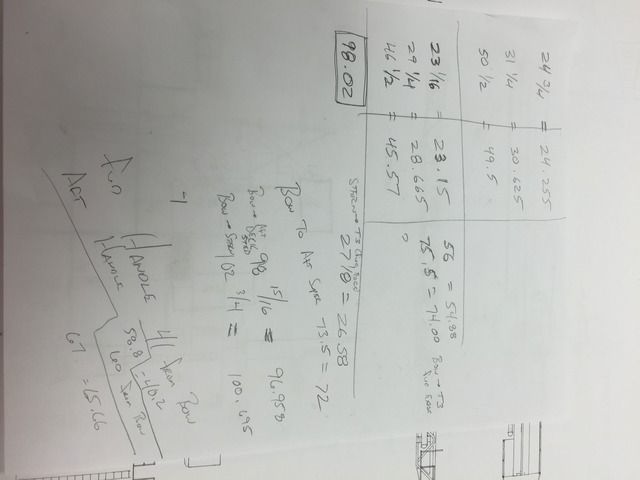 24 3/4 = 24.255
31 1/4 = 30.625
50 1/2 = 49.5
23 1/16 = 23.15
29 1/4 = 28.665
46 1/2 = 45.57
98.02
56 = 54.88
75.5 = 74.00 Bow → T3
27 1/8 = 26.58
Bow To Aft Spre 73.5 = 72
Bow → Aft Deck Step 98 15/16 = 96.958
Bow → Stern 102 3/4 = 100.695
-1
Fwd Handle 41 From Bow
= 40.2
Aft Handle 58.8 60 From Bow
67 = 65.66